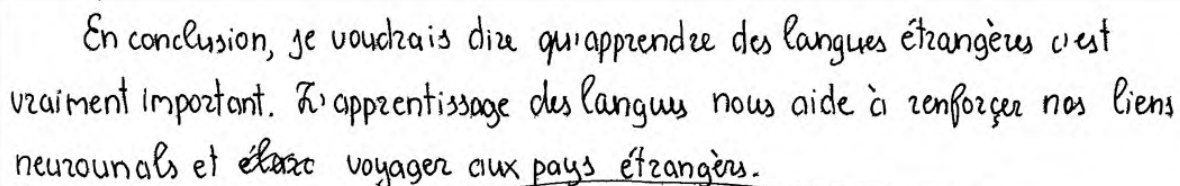 En conclusion, je voudrais dire qu'apprendre des langues étrangères c'est
vraiment important. L'apprentissage des langues nous aide à renforçer nos liens
neurounals et voyager aux pays étrangèrs.